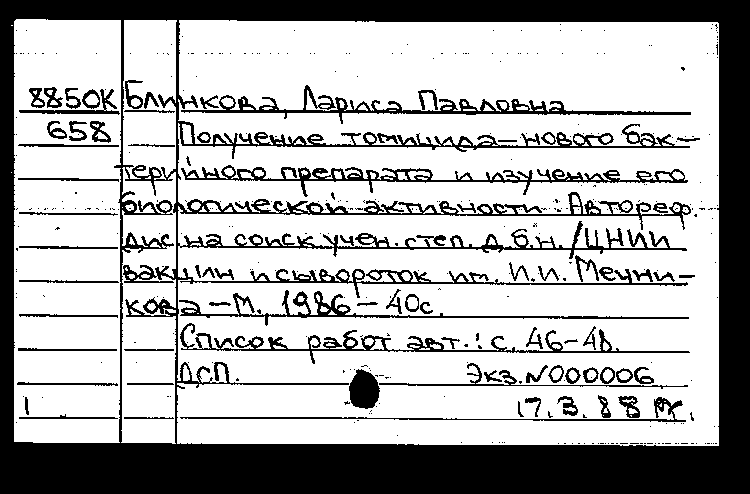 8850К Блинкова, Лариса Павловна
658 Получение томицида — нового бак-
терийного препарата и изучение его
биологической активности : Автореф.
дис. на соиск. учен. степ. д.б.н. / ЦНИИ
вакцин и сывороток им. И.И. Мечни-
кова. — М., 1986. — 40с.
Список работ авт.: с. 46-48.
ДСП. Экз. №000006
1 17.3.88